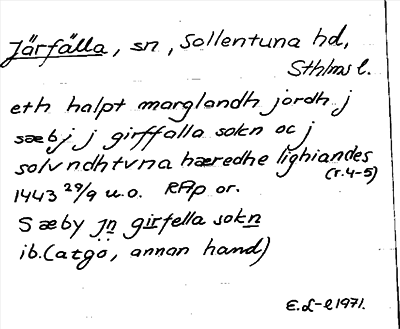 Järfälla, sn, Sollentuna hd,
Sthlms l.
eth halpt marglandh jordh j
sæbj j girffalla sokn oc j
solvndhtvna hæredhe lighiandes
(r.4-5)
1443 29/9 u.o. RAp or.
Sæby jn girfella sokn
ib. (atgö, annan hand)
E.L-l 1971.